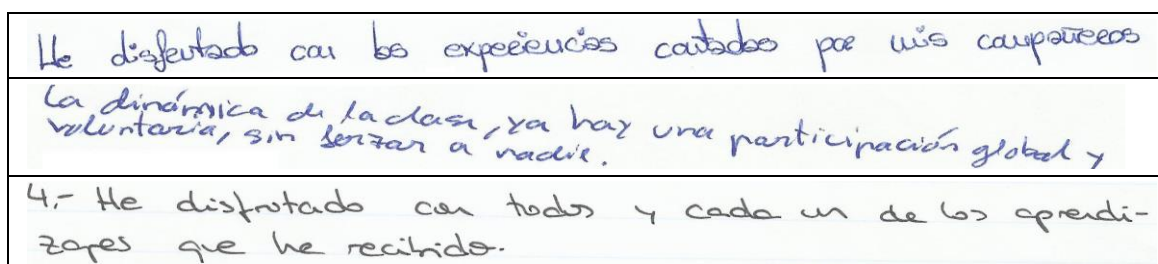 He disfrutado con las experiencias contadas por mis compañeros
La dinámica de la clase, ya hay una participación global y
voluntaria, sin forzar a nadie.
4.- He disfrutado con todos y cada un de los aprendi-
zajes que he recibido.